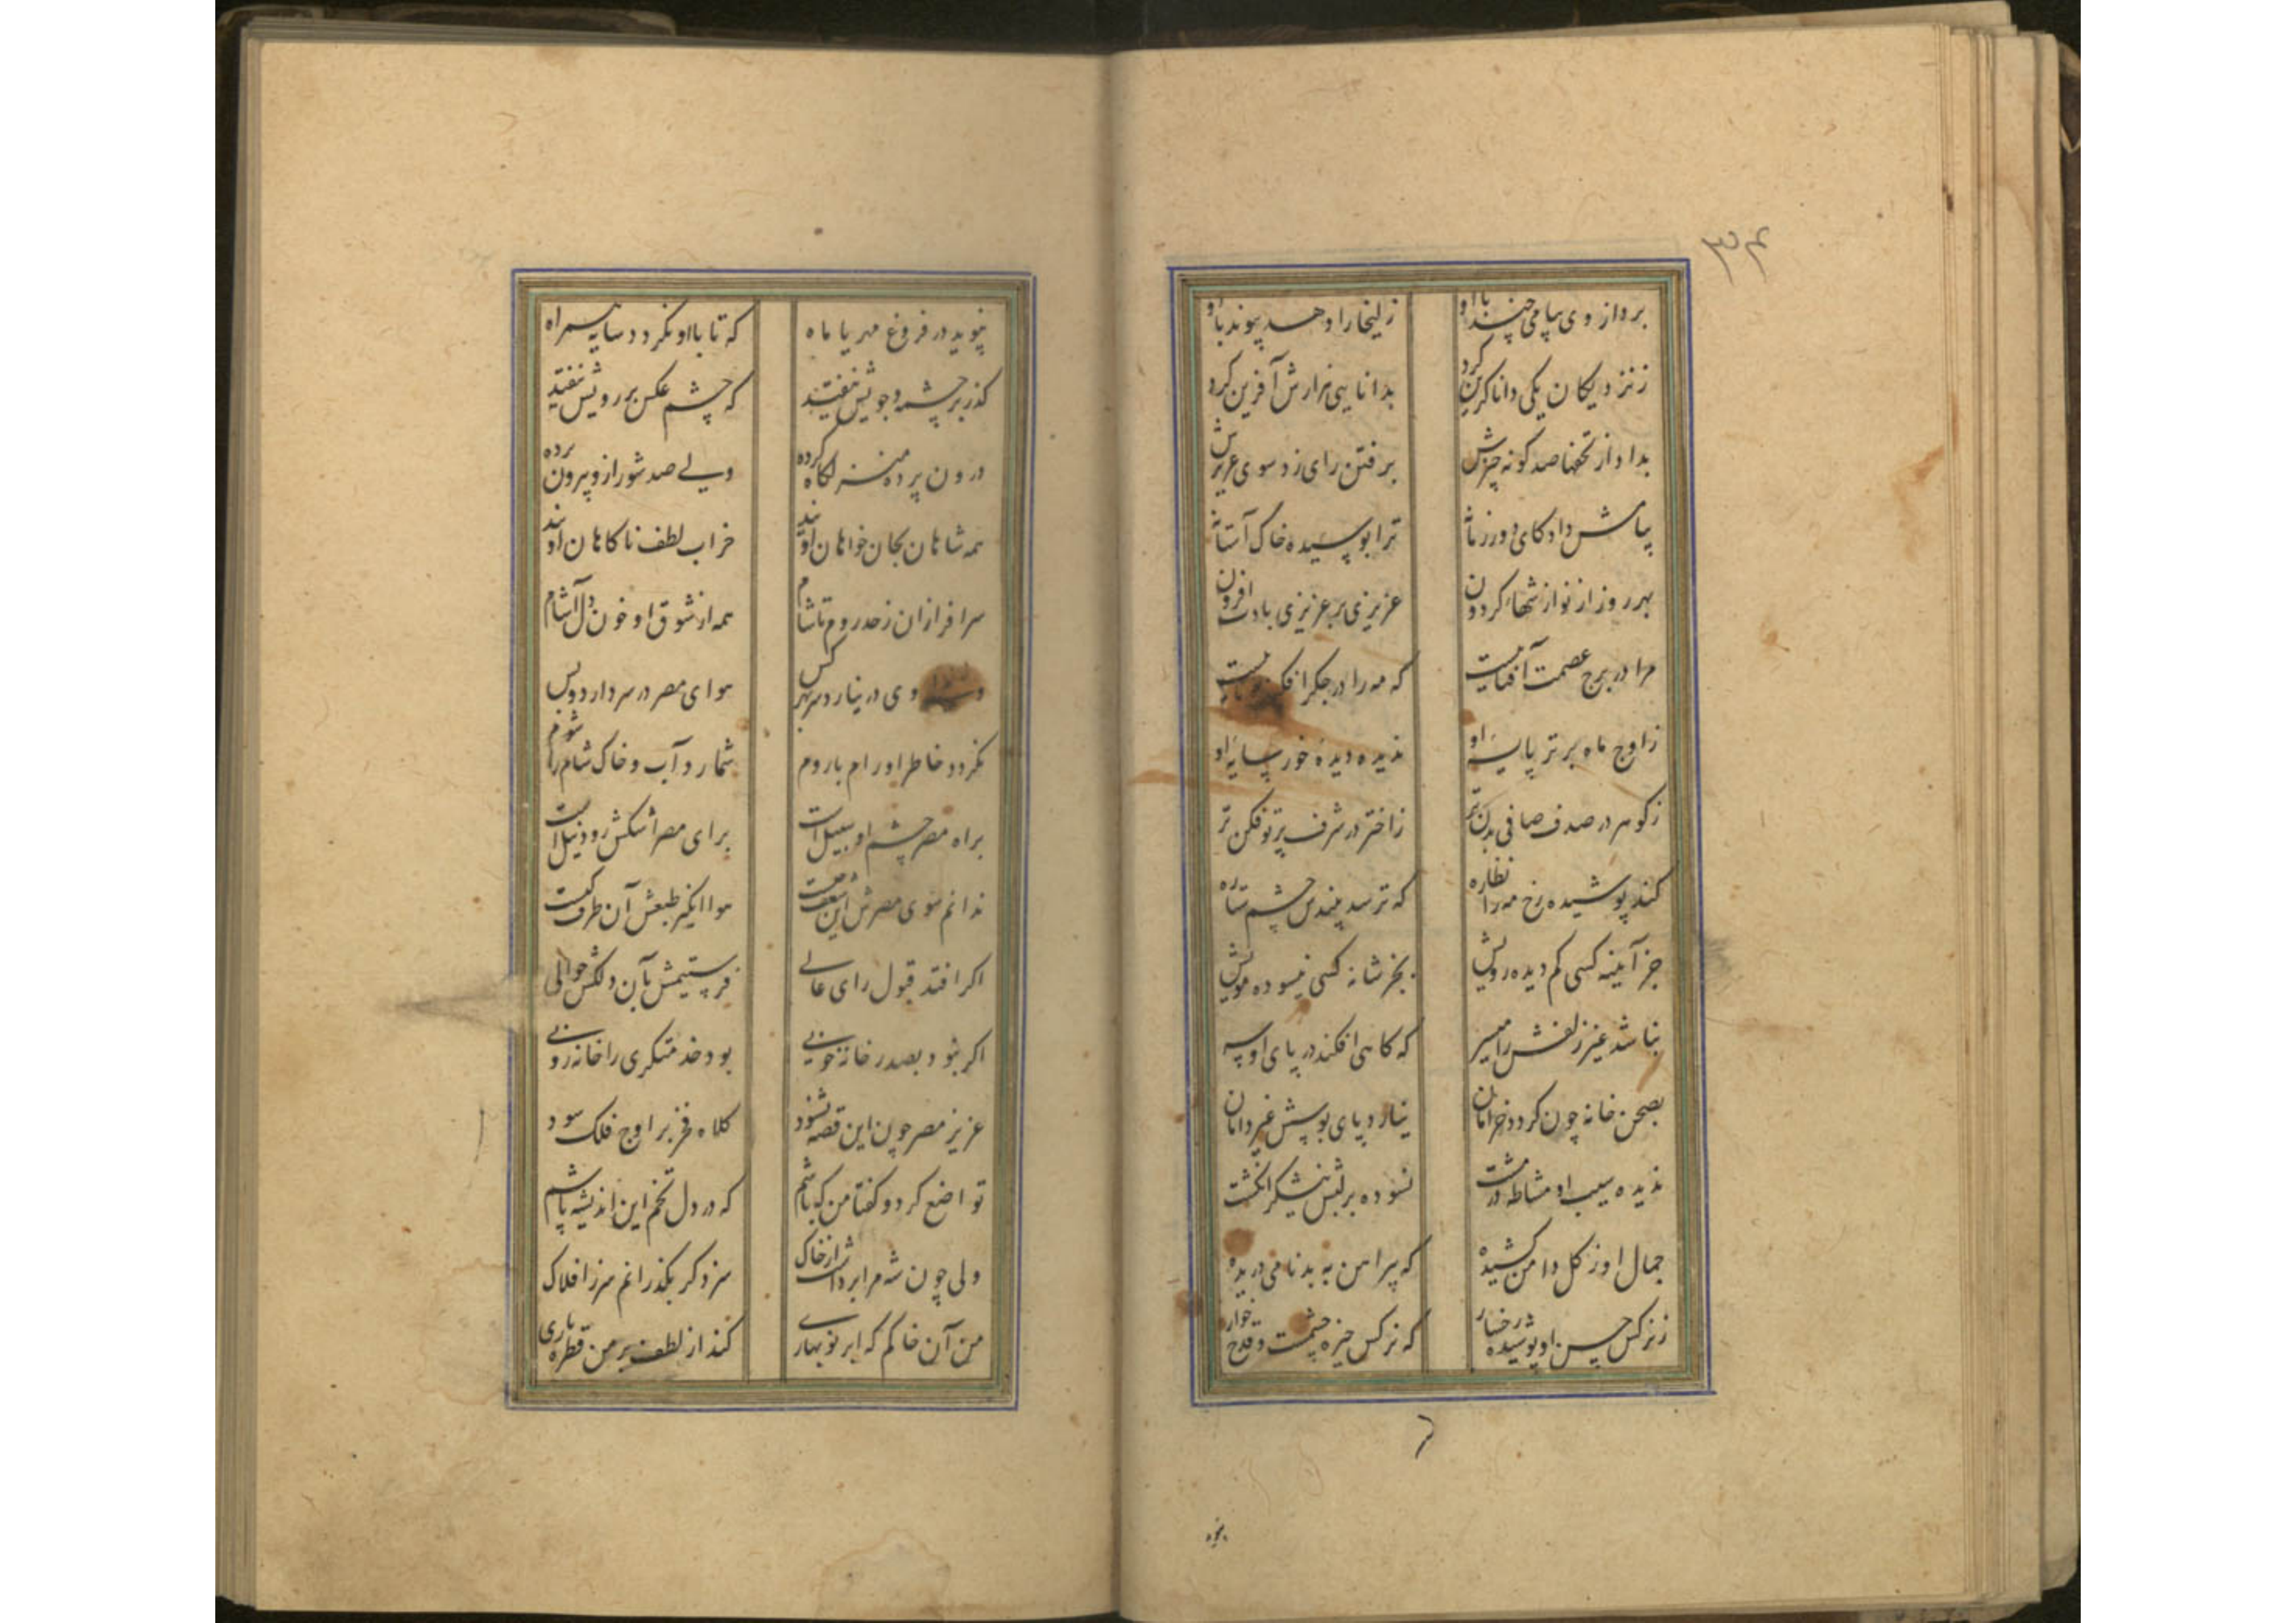 ۳۴
برد از وی پیامی چند با او
زلیخا را دهد پیوند با او
ز نزدیکان یکی دانا کزین کرد
بدانایی هزارش آفرین کرد
بداد از تحفها صد کونه چیزش
برفتن رای زد سوی عزیزش
پیامش داد کای دور زمانه
ترا بوسیده خاک آستانه
بهر روز از نوازشهاء کردون
عزیزی بر عزیزی بادت افزون
مرا در برج عصمت آفتابیست
که مه را در جکر افکنده تابیست
ز اوج ماه برتر پایهٔ او
ندیده دیدهٔ خور سایهٔ او
ز کوهر در صدف صافی بدن تر
ز اختر در شرف پرتو فکن تر
کند پوشیده رخ مه را نظاره
که ترسد بیندش چشم ستاره
جز آیینه کسی کم دیده رویش
بجز شانه کسی نبسوده مویش
نباشد غیر زلفش را میسر
که کاهی افکند در پای او سر
بصحن خانه چون کردد خرامان
نیارد پای بوسش غیر دامان
ندیده سیب او مشاطه در مشت
نسوده بر لبش نیشکر انکشت
جمال او ز کل دامن کشیده
که پیراهن به بدنامی دریده
ز نرکس حسن او پوشیده رخسار
که نرکس خیره چشمست و قدح خوار
نپوید در فروغ مهر یا ماه
که تا با او نکردد سایه همراه
کذر بر چشمه و جویش نیفتد
که چشم عکس بر رویش نیفتد
درون پرده منزلکاه کرده
ولی صد شور ازو بیرون پرده
همه شاهان بجان خواهان اویند
خراب لطف ناکاهان اویند
سرافرازان ز حد روم تا شام
همه از شوق او خون دل آشام
وی در نیارد سر بهر کس
هوای مصر در سر دارد و بس
نکردد خاطر او رام با روم
شمارد آب و خاک شام را شوم
براه مصر چشم او سبیلست
برای مصر اشکش رود نیلست
ندانم سوی مصرش این شعف چیست
هوا انکیز طبعش آن طرف کیست
اکر افتد قبول رای عالی
فرستیمش بآن دلکش حوالی
اکر نبود بصدر خانه خوبی
بود خدمتکری را خانه روبی
عزیز مصر چون این قصه بشنود
کلاه فخر بر اوج فلک سود
تواضع کرد و کفتا من که باشم
که در دل تخم این اندیشه پاشم
ولی چون شه مرا برداشت از خاک
سزد کر بکذرانم سر ز افلاک
من آن خاکم که ابر نو بهاری
کند از لطف بر من قطره باری